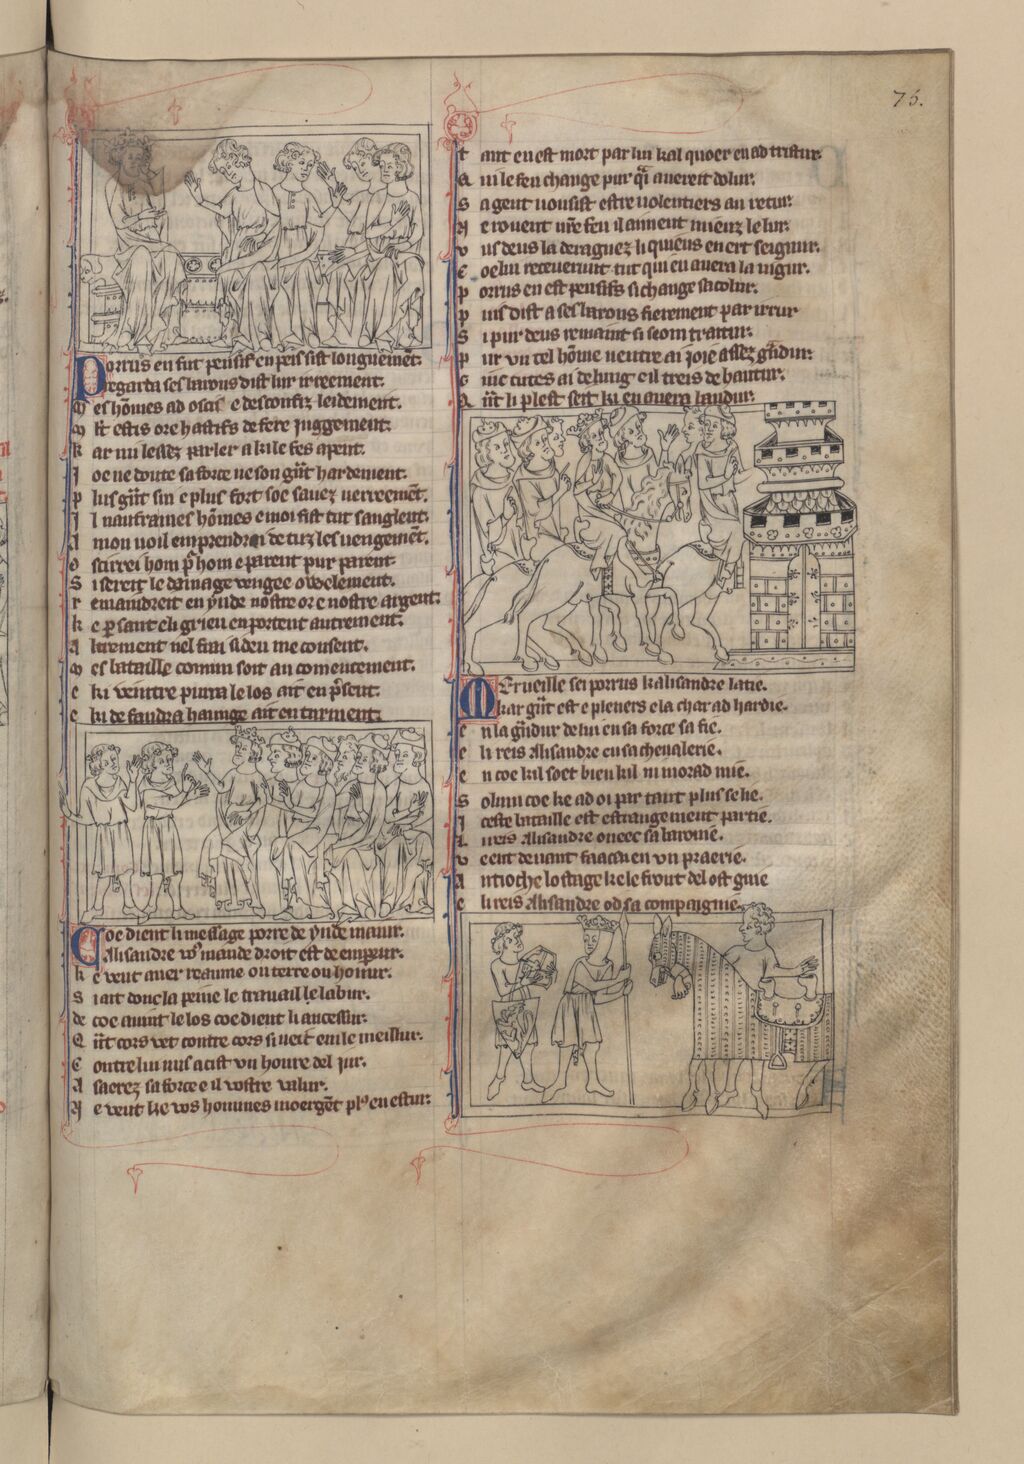 75.
Porrus en fut pensif en peis sist longuemēt.
Regarda ses barous dist lur irreement.
Mes hōmes ad oscis e desconfiz leidement.
kar nu lessez parler a ki le fes apent.
Joe ne doute sa force ne son gͣnt hardement.
plus gͣnt sui e plus fort soe sauez uerreemēt.
Il nauframes hōmes e moi fist tut sanglent.
A mon uoil emprendrai de tuz les uengemēt.
hom pͣ hom e parent pur parent.
Si sereit le damage vengee owelement.
remaindreit en ynde nostre or e nostre argent.
ke pͣ sant cli grieu en portent autrement.
Autrement nel frai si deu me consent.
Mes bataille comun soit au comencement.
e ki ventre piura le los ait en pͣsent.
e ki defaudra haunge ait en turment.
Coe dient li message porre de ynde maiur.
Alisandre vͦ mande droit est de empeur.
ke veut auer reaume ou terre ou honur.
si ait donc la peine le trauail le labur.
de coe auint le los coe dient li ancessur.
cors vet contre cors
Contre lui nus a cist vn houre del iur.
Asaerez sa force e il vostre valur.
Ne veut ke vos hommes moergēt plͦ en estur.
tant en est mort par lui kal quoer en ad tristur.
le feu change pur qͥ auereit dolur.
sa gent uousist estre uolentiers au retur.
Ne rouent vr̄e feu il aiment mieuz le lur.
vus deus la deragnez li quiens en ert seignur.
Coe lui receuerunt tut qui en auera la uigur.
porrus en est pensifs si change sa colur.
puis dist a ses barous fierement par irrur
Si pur deus remaint si seom traitur.
pur vn tel hōme ueintre ai ioie assez gͣndur.
cutes ai de lung e il treis de hautur.
li plest seit ki en auera laudur.
Merueille sei porrus kalisandre latie.
kar gͣnt est e pleners e la char ad hardie.
en la gͣndur de lui en sa force sa fie.
e li reis Alisandre en sa cheualerie.
en coe kil soet bien kil ni morad mie.
Solum coe ke ad oi par tant plus se fie.
Iceste bataille est estrangement partie.
Li reis Alisandre ouoec sa baronie.
veent deuant en vn praerie.
Antioche lostage ke le frout del ost guie
e li reis Alisandre od sa compaignie.